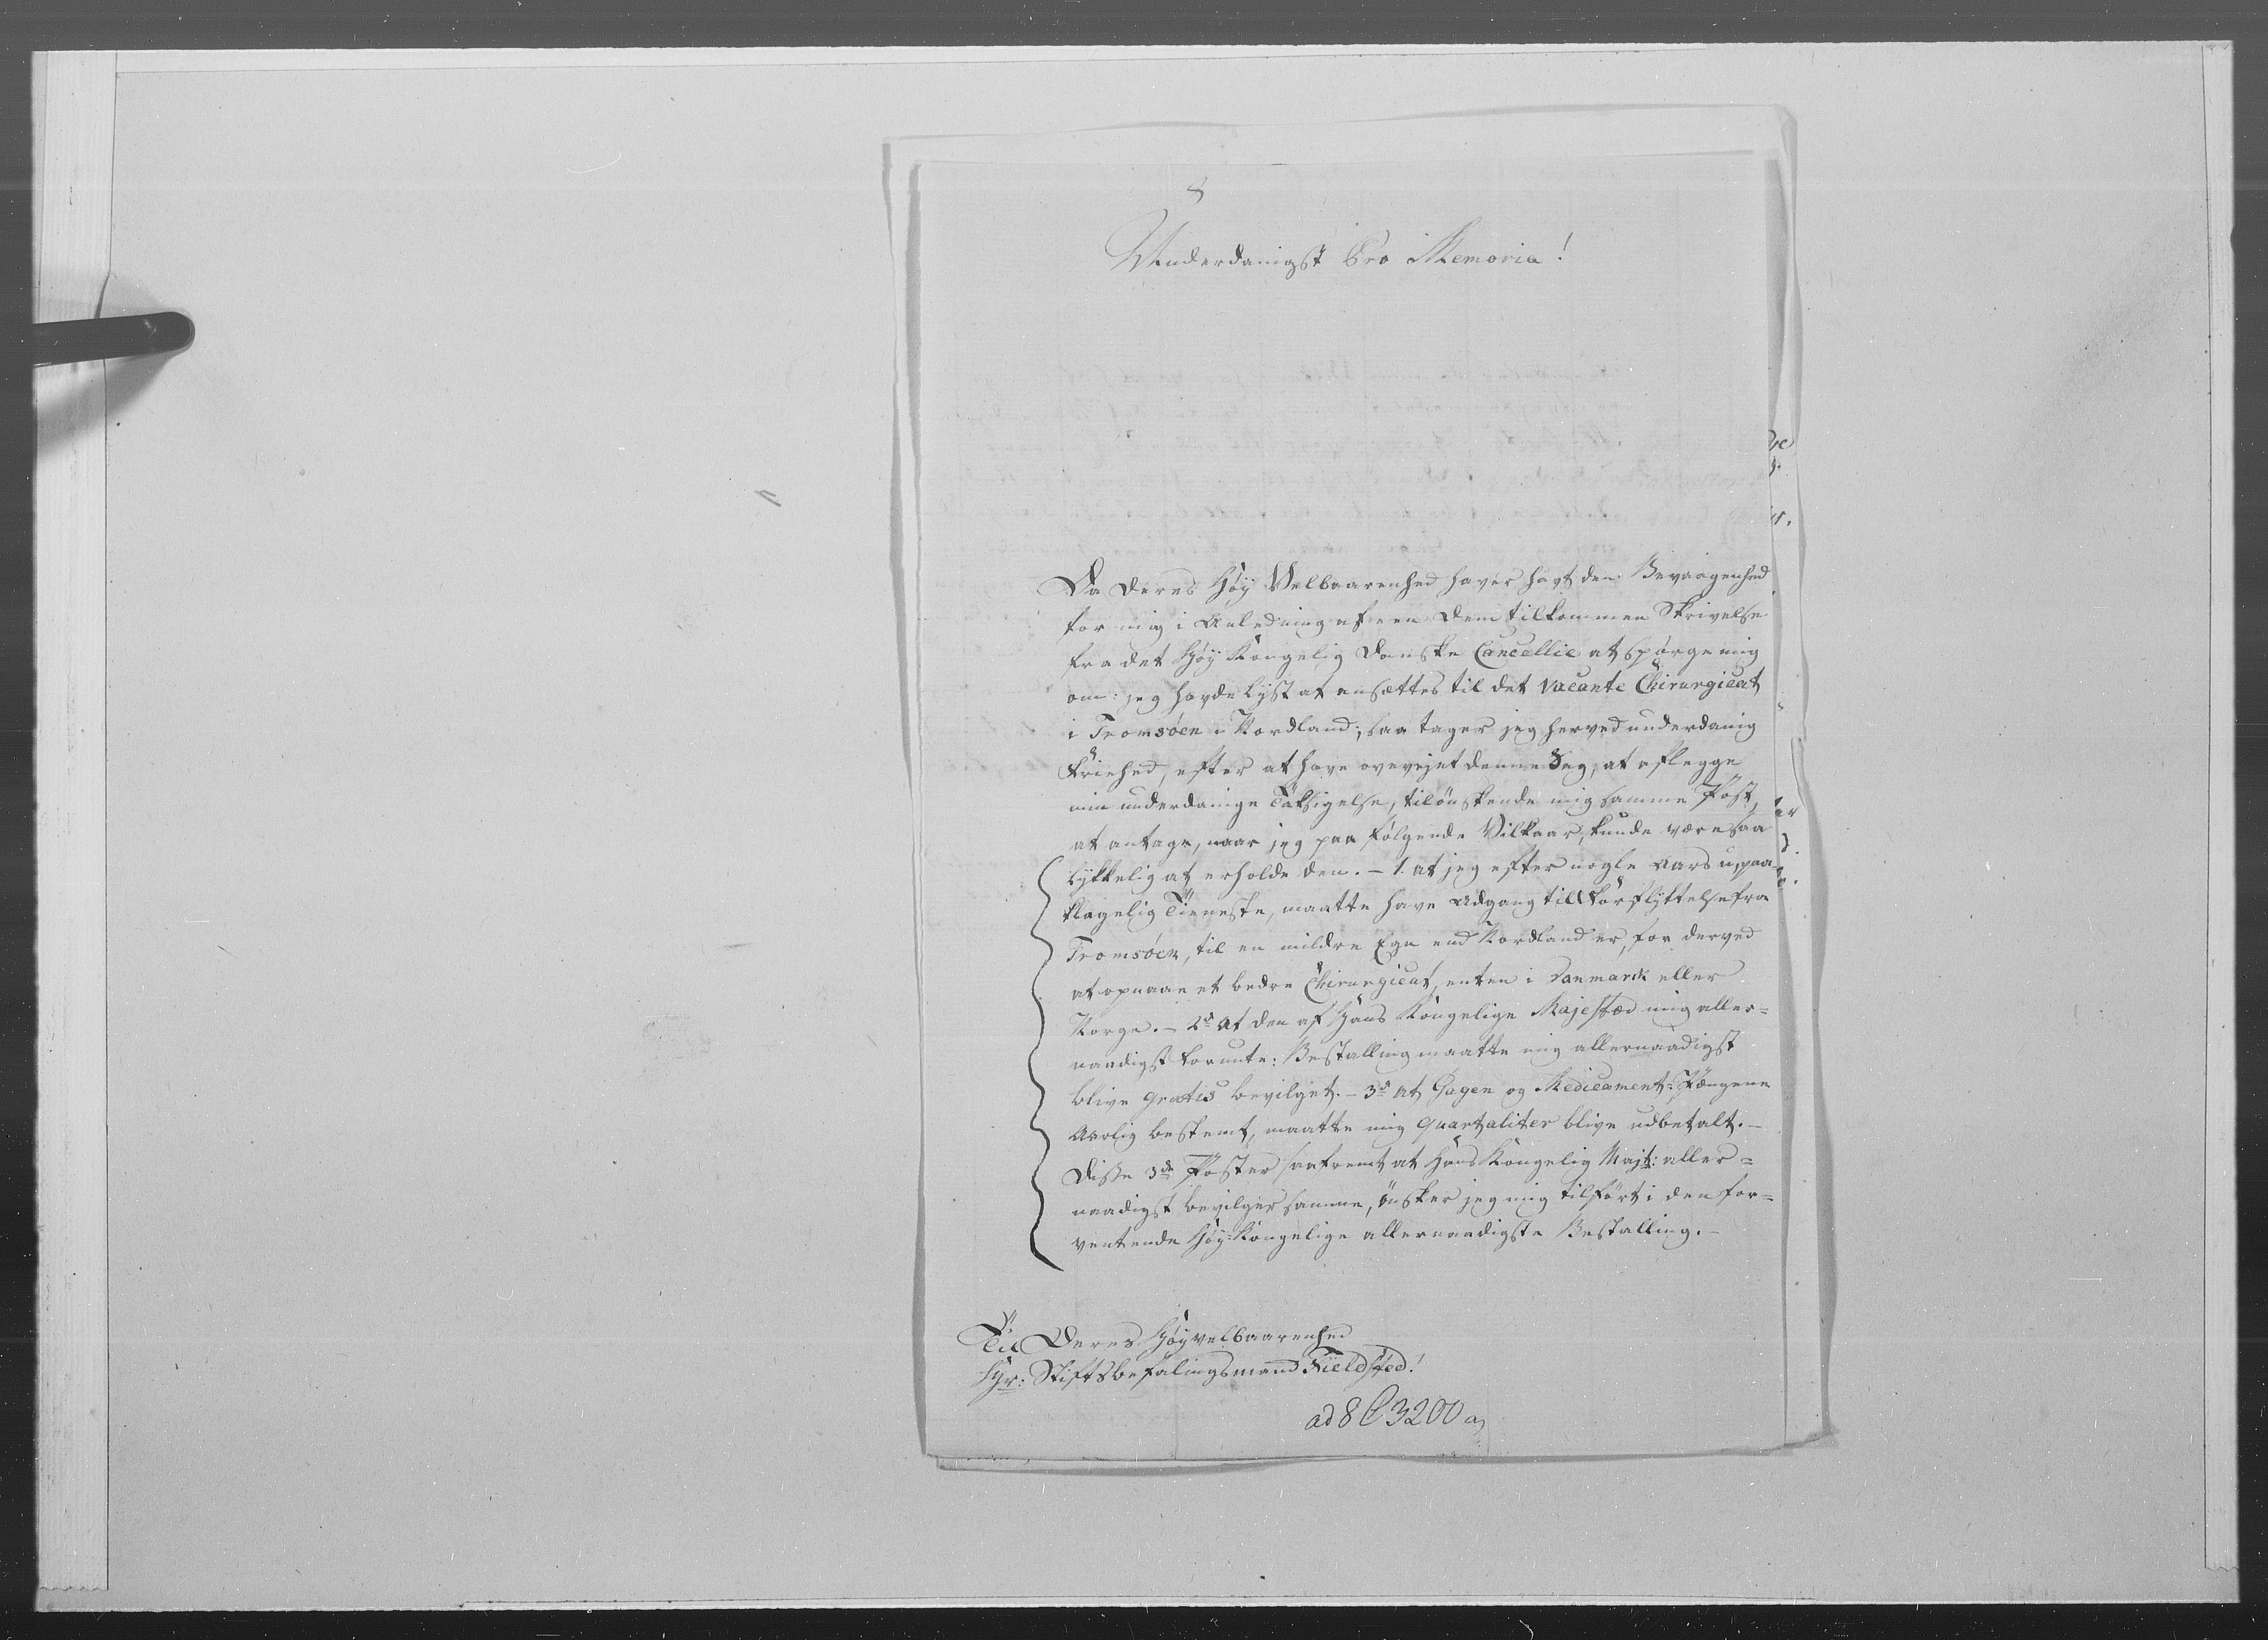 Underdanigst Pro Memoria!
Da Deres Høy Velbaarenhed haver havt den Bevaagenhed
for mig i Anledning af een Dem tilkommen Skrivelse
fra det Høy Kongelig Danske Cancellie at spørge mig
om: jeg havde Lyst at ansættes til det vacante Chirurgicat
i Tromsöen i Nordland; saa tager jeg herved underdanig
Friehed, efter at have overvejet denne Sag, at aflegge
min underdanige Taksigelse, tilönskende mig samme Post,
at antage, naar jeg paa følgende Vilkaar, kunde være saa
Lykkelig at erholde den. – 1. at jeg efter nogle Aars upaa-
klagelig Tieneste, maatte have Adgang till Forflyttelse fra
Tromsöen, til en mildre Egn end Nordland er, for derved
at opnaae et bedre Chirurgicat, enten i Danmark eller
Norge. – 2d At den af Hans Kongelige Majestæt mig aller=
naadigst forunte: Bestalling maatte mig allernaadigst
blive gratis bevilget. – 3d At Gagen og Medicament=Pængene
Aarlig bestemt, maatte mig Quartaliter blive udbetalt. –
Disse 3de Poster saafremt at Hans Kongelig Majt: aller=
naadigst bevilger samme, ønsker jeg mig tilført i den for=
ventende Høy=Kongelige allernaadigste Bestalling. –
Til Deres Høyvelbaarenhed
Hr: Stiftsbefalingsmand Fieldsted!
ad 8 C 3200 a)